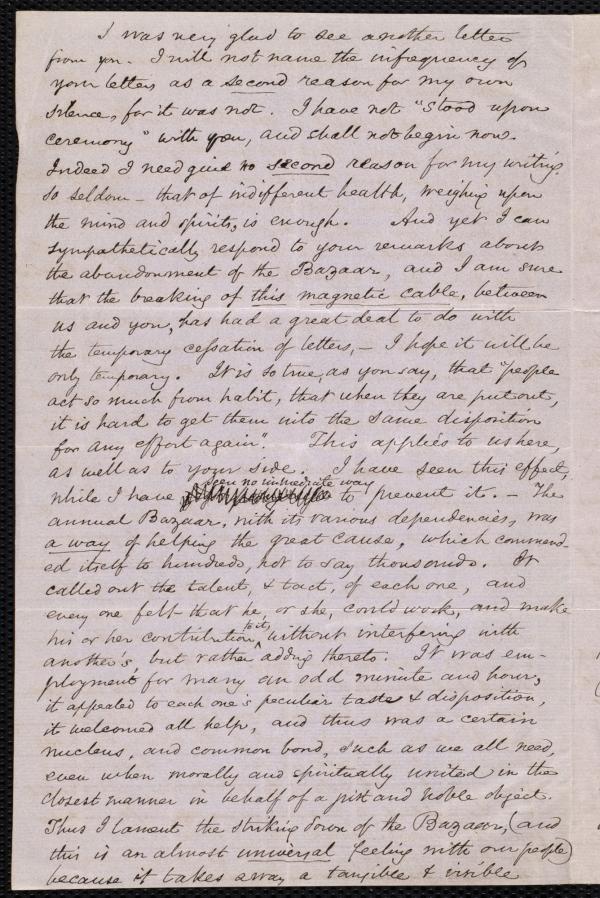 I was very glad to see another letter
from you. I will not name the infrequency of
your letters as a second reason for my own
silence, for it was not. I have not "stood upon
ceremony" with you, and shall not begin now.
Indeed I need give no second reason for my writing
so seldom - that of indifferent health, weighing upon
the mind and spirits, is enough. And yet I can
sympathetically respond to your remarks about
the abandonment of the Bazaar, and I am sure
that the breaking of this magnetic cable, between
us and you, has had a great deal to do with
the temporary cessation of letters, - I hope it will be
only temporary. It is so true, as you say, that "people
act so much from habit, that when they are put out,
it is hard to get them into the same disposition
for any effort again". This applies to us here,
as well as to your side. I have seen this effect,
while I have seen no immediate way to prevent it. - The
annual Bazaar, with its various dependencies, was
a way of helping the great cause, which commend-
ed itself to hundreds, not to say thousands. It
called out the talent, & tact, of each one, and
every one felt that he, or she, could work, and make
his or her contribution to it, without interfering with
another's, but rather adding thereto. It was em-
ployment for many an odd minute and hour,
it appealed to each one's peculiar taste & disposition,
it welcomed all help, and thus was a certain
nucleus, and common bond, such as we all need,
even when morally and spiritually united in the
closest manner in behalf of a just and noble object.
Thus I lament the striking down of the Bazaar, (and
this is an almost universal feeling with our people)
because it takes away a tangible & visible